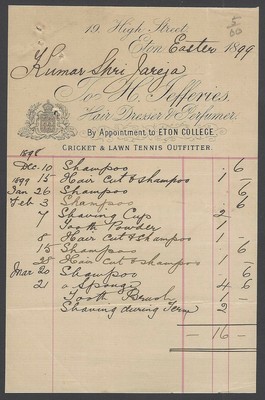 5/00
19, High Street,
Eton, Easter 1899
Kumar Shri Jareja
To H. Jefferies,
Hair Dresser & Perfumer.
By Appointment to ETON COLLEGE.
CRICKET & LAWN TENNIS OUTFITTER.
1898
Dec. 10 Shampoo 6
1899 15 Hair Cut & Shampoo 1
Jan 26 Shampoo 6
Feb 3 Shampoo 6
7 Shaving Cup 2
Tooth Powder 1
8 Hair Cut & Shampoo 1
15 Shampoo 6
28 Hair Cut & Shampoo 1
Mar 20 Shampoo 6
21 a Sponge 4 6
Tooth Brush 1
Shaving during Term 2
16